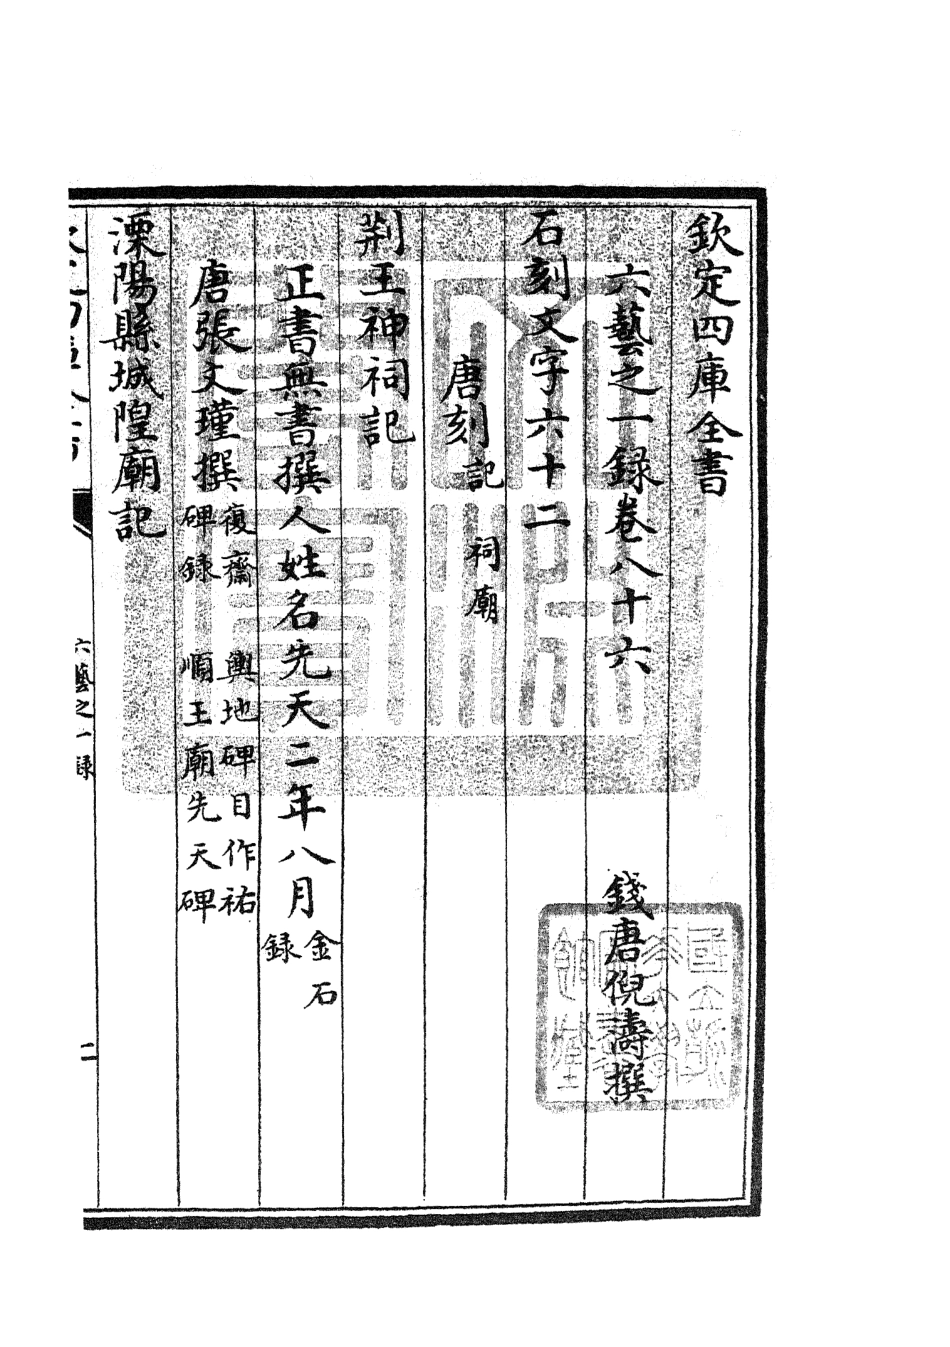 欽定四庫全書
六藝之一録卷八十六　錢唐倪濤撰
石刻文字六十二
唐刻　記　祠廟
荆王神祠記
正書無書撰人姓名先天二年八月金石録
唐張文瑾撰復齋碑録　輿地碑目作祐順王廟先天碑
溧陽縣城隍廟記
六藝之一録
二